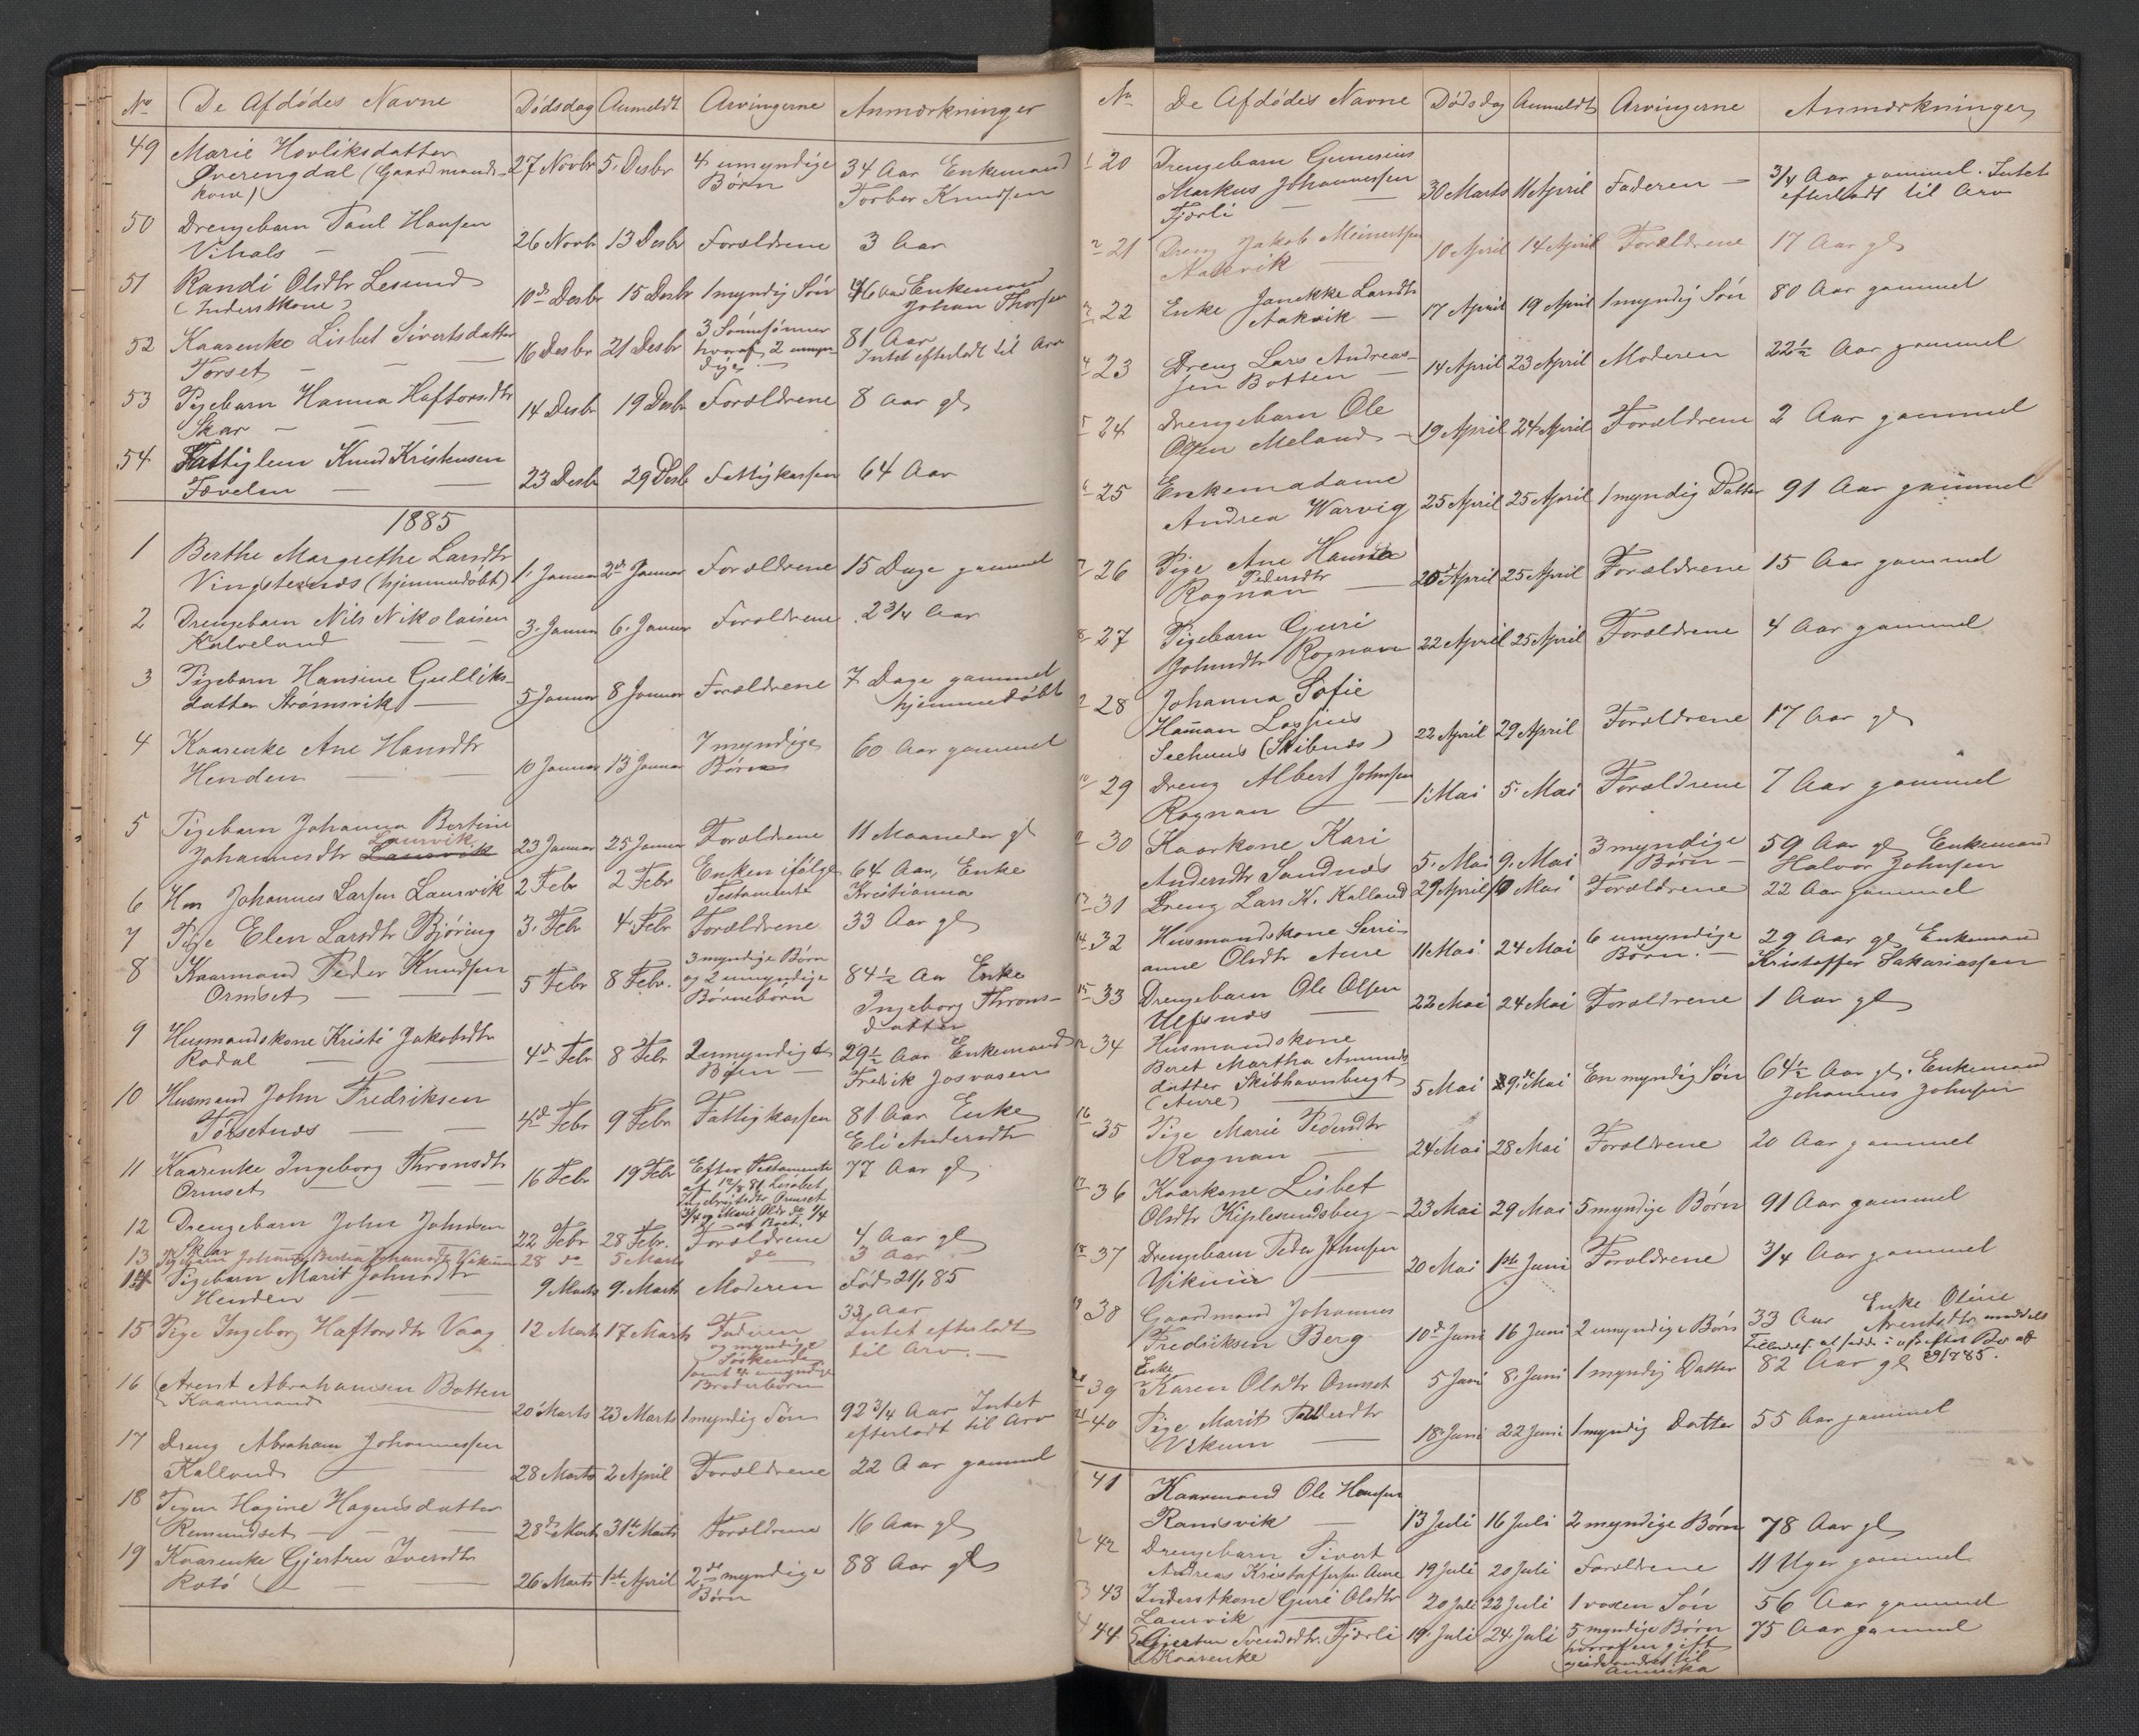 No De Afdödes Navne Dödsdag Anmeldt Arvingerne Anmærkninger
49 Marie Hovliksdatter
Øverengdal (Gaardmands- 27 Novbr 5. Desbr 4 umyndige 34 Aar Enkemand
kone) Børn Torber Knudsen
50 Drengebarn Paul Hansen
Vihals — 26 Novbr 13 Desbr Forældrene 3 Aar
51 Randi Olsdtr Lesund 10d Desbr 15 Desbr 1 myndig Søn 46 Aar Enkemand
(Inderstkone) Johan Thorsen
52 Kaarenke Lisbet Sivertsdatter 16 Desbr 21 Desbr 3 Sønnesønner 81 Aar
Torset — — hvoraf 2 umyn- Intet efterladt til Arv
dige —
53 Pigebarn Hanna Haftorsdtr 14 Desbr 19 Desbr Forældrene 8 Aar gl
Skar — —
54 Fattiglem Knud Kristensen
Tevelen — — 23 Desbr 29 Desbr Fattigkassen 64 Aar
1885
1 Berthe Margrethe Larsdtr
Vingsternes (hjemmedøbt) 1. Januar 2d Januar Forældrene 15 Dage gammel
2 Drengebarn Nils Nikolaisen 3. Januar 6. Januar Forældrene 2 3/4 Aar
Kalveland — —
3 Pigebarn Hansine Gulliks- 5 Januar 8 Januar Forældrene 7 Dage gammel
datter Strømsvik — hjemmedøbt
4 Kaarenke Ane Hansdtr 10 Januar 13 Januar 7 myndige 60 Aar gammel
Henden — — Børn
5 Pigebarn Johanna Bertine
Laurvik
Johannesdtr Laurvik 23 Januar 25 Januar Forældrene 11 Maaneder gl
6 Hm Johannes Larsen Laurvik 2 Febr 2 Febr Enken ifølge 64 Aar, Enke
Testamente Kristianna
7 Pige Elen Larsdtr Bjøring 3. Febr 4 Febr Forældrene 33 Aar gl
8 Kaarmand Peder Knudsen 5 Febr 8 Febr. 3 myndige Børn 84 1/2 Aar Enke
Ormset — — og 2 umyndige Ingeborg Throns-
Børnebørn datter
9 Husmandskone Kristi Jakobsdtr 4d Febr 8 Febr 2 umyndige 29 1/2 Aar Enkemand
Rodal — — Børn — Fredrik Josvasen
10 Husmand John Fredriksen 4d Febr 9 Febr Fattigkassen 81 Aar Enke
Torsetnæs — — Eli Andersdtr
11 Kaarenke Ingeborg Thronsdtr 16 Febr 19 Febr Efter Testamente 77 Aar gl
Ormset — — af 12/8 81 Lisabet
Ingebrigtsdtr Ormset
3/4 og Marie Olsdr do 1/4
af Boet.
12 Drengebarn John Johnsen 22 Febr 28 Febr. Forældrene 4 Aar gl
Skar
13 Pigebarn Johanna Bertha Johansdtr Vikum 28 do 5 Marts do 3 Aar
14 Pigebarn Marit Johnsdtr 9 Marts 9. Marts Moderen Født 21/1 85
Henden —
15 Pige Ingeborg Haftorsdtr Vaag 12 Marts 17 Marts Faderen 33 Aar
og myndige Intet efterladt
Søskende til Arv. —
samt 4 umyndige
Broderbørn
16 Arent Abrahamsen Botten
Kaarmand 20 Marts 23 Marts 1 myndig Søn 92 3/4 Aar Intet
efterladt til Arv
17 Dreng Abraham Johannessen
Kalland — 28 Marts 2 April Forældrene 22 Aar gammel
18 Pigen Hagine Hagensdatter
Remundset — — 28d Marts 31te Marts Forældrene 16 Aar gl
19 Kaarenke Gjertru Iversdtr
Rotö — — 26 Marts 1ste April 2de myndige 88 Aar gl
Børn
No De Afdödes Navne Dödsdag Anmeldt Arvingerne Anmærkninger
1 20 Drengebarn Gunerius
Markus Johannessen 30 Marts 11 April Faderen — 3/4 Aar gammel. Intet
Fjærli — — efterladt til Arv
2 21 Dreng Jakob Meinertsen 10 April 14 April Forældrene 17 Aar gl
Aakvik —
3 22 Enke Janekke Larsdtr 17 April 19 April 1 myndig Søn 80 Aar gammel
Aakvik —
4 23 Dreng Lars Andreas- 14 April 23 April Moderen 22 1/2 Aar gammel
sen Botten —
5 24 Drengebarn Ole
Olsen Meland — 19 April 24 April Forældrene 2 Aar gammel
6 25 Enkemadame
Andrea Warvig 25 April 25 April 1 myndig Datter 91 Aar gammel
7 26 Pige Ane Hanna
Pedersdtr
Rognan — 20d April 25 April Forældrene 15 Aar gammel
8 27 Pigebarn Guri
Johnsdtr Rognan 22 April 25 April Forældrene 4 Aar gammel
9 28 Johanna Sofie
Haman Lossius
Seehuus (Skibnæs) 22 April 29 April Forældrene 17 Aar gl
10 29 Dreng Albert Johnsen
Rognan — — 1. Mai 5. Mai Forældrene 7 Aar gammel
30 Kaarkone Kari
Andersdtr Sandnæs 5. Mai 9. Mai 3 myndige 59 Aar gl Enkemand
Børn — Halvor Johnsen
31 Dreng Lars K. Kalland 29 April 10 Mai Forældrene 22 Aar gammel
14 32 Husmandskone Seri-
anne Olsdtr Aure 11 Mai 24 Mai 6 umyndige 29 Aar gl Enkemand
Børn. — Kristoffer Sakariassen
15 33 Drengebarn Ole Olsen
Ulfsnæs — 22 Mai 24 Mai Forældrene 1 Aar gl
34 Husmandskone
Beret Martha Amunds
datter Skibhavnbugt 5 Mai 29de Mai En myndig Søn 64 1/2 Aar gl. Enkemand
(Aure) — Johannes Johnsen
16 35 Pige Marie Pedersdtr
Rognan — 24 Mai 28 Mai Forældrene 20 Aar gammel
17 36 Kaarkone Lisbet
Olsdtr Kiplesundsberg — 23 Mai 29 Mai 5 myndige Børn 91 Aar gammel
18 37 Drengebarn Peder Johnsen
Vikum — 20 Mai 1ste Juni Forældrene 3/4 Aar gammel
19 38 Gaardmand Johannes
Fredriksen Berg 10d Juni 16 Juni 2 umyndige Børn 33 Aar Enke Oline
Arentsdtr meddelt
20 39 Enke
Karen Olsdtr Ormset 5 Juni 8. Juni 1 myndig Datter 82 Aar gl
21 40 Pige Marit Pedersdtr
Vikum — 18. Juni 22 Juni 1 myndig Datter 55 Aar gammel
1 41 Kaarmand Ole Hansen
Ramsvik — 13 Juli 16 Juli 2 myndige Børn 78 Aar gl
2 42 Drengebarn Sivert
Andreas Kristoffersen Aure 19 Juli 20 Juli Forældrene 11 Uger gammel
3 43 Inderstkone Guri Olsdtr 20 Juli 22 Juli 1 voxen Søn 56 Aar gammel
Laurvik —
4 44 Gjertru Svendsdtr. Fjærli 19. Juli 24. Juli 5 myndige Børn 75 Aar gammel
Kaarenke hvoraf en gift
til
Amerika